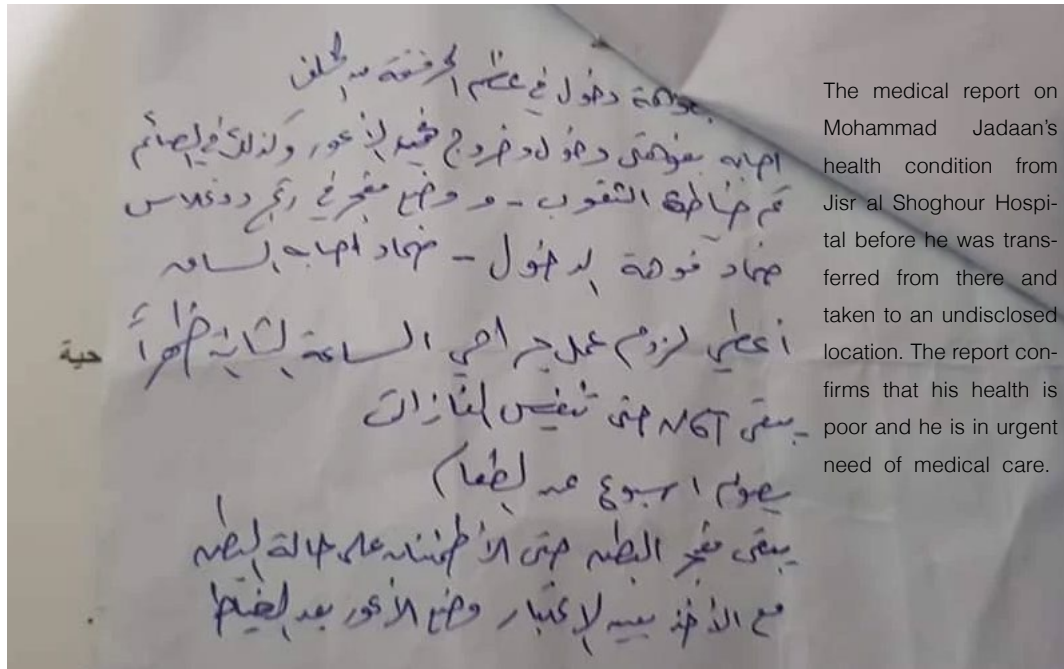 بفوهة دخول في عظم الحرقفة من الخلف
اصابه بفوهتي دخول وخروج في الأعور وكذلك في الصائم
تم خياطة الثقوب - و وضع مفجر في رتج دوغلاس
ضماد فوهة الدخول - ضماد اصابه الساعد
أعطي لزوم عمل جراحي الساعة الثانية ظهراً
حية
يبقى NGT حتى تنفيس الغازات
يصوم اسبوع عن الطعام
يبقى مفجر البطن حتى الأطمئنان على حالة البطن
مع الأخذ بعين الإعتبار وضع الأعور بعد الخياطة
The medical report on
Mohammad Jadaan's
health condition from
Jisr al Shoghour Hospi-
tal before he was trans-
ferred from there and
taken to an undisclosed
location. The report con-
firms that his health is
poor and he is in urgent
need of medical care.